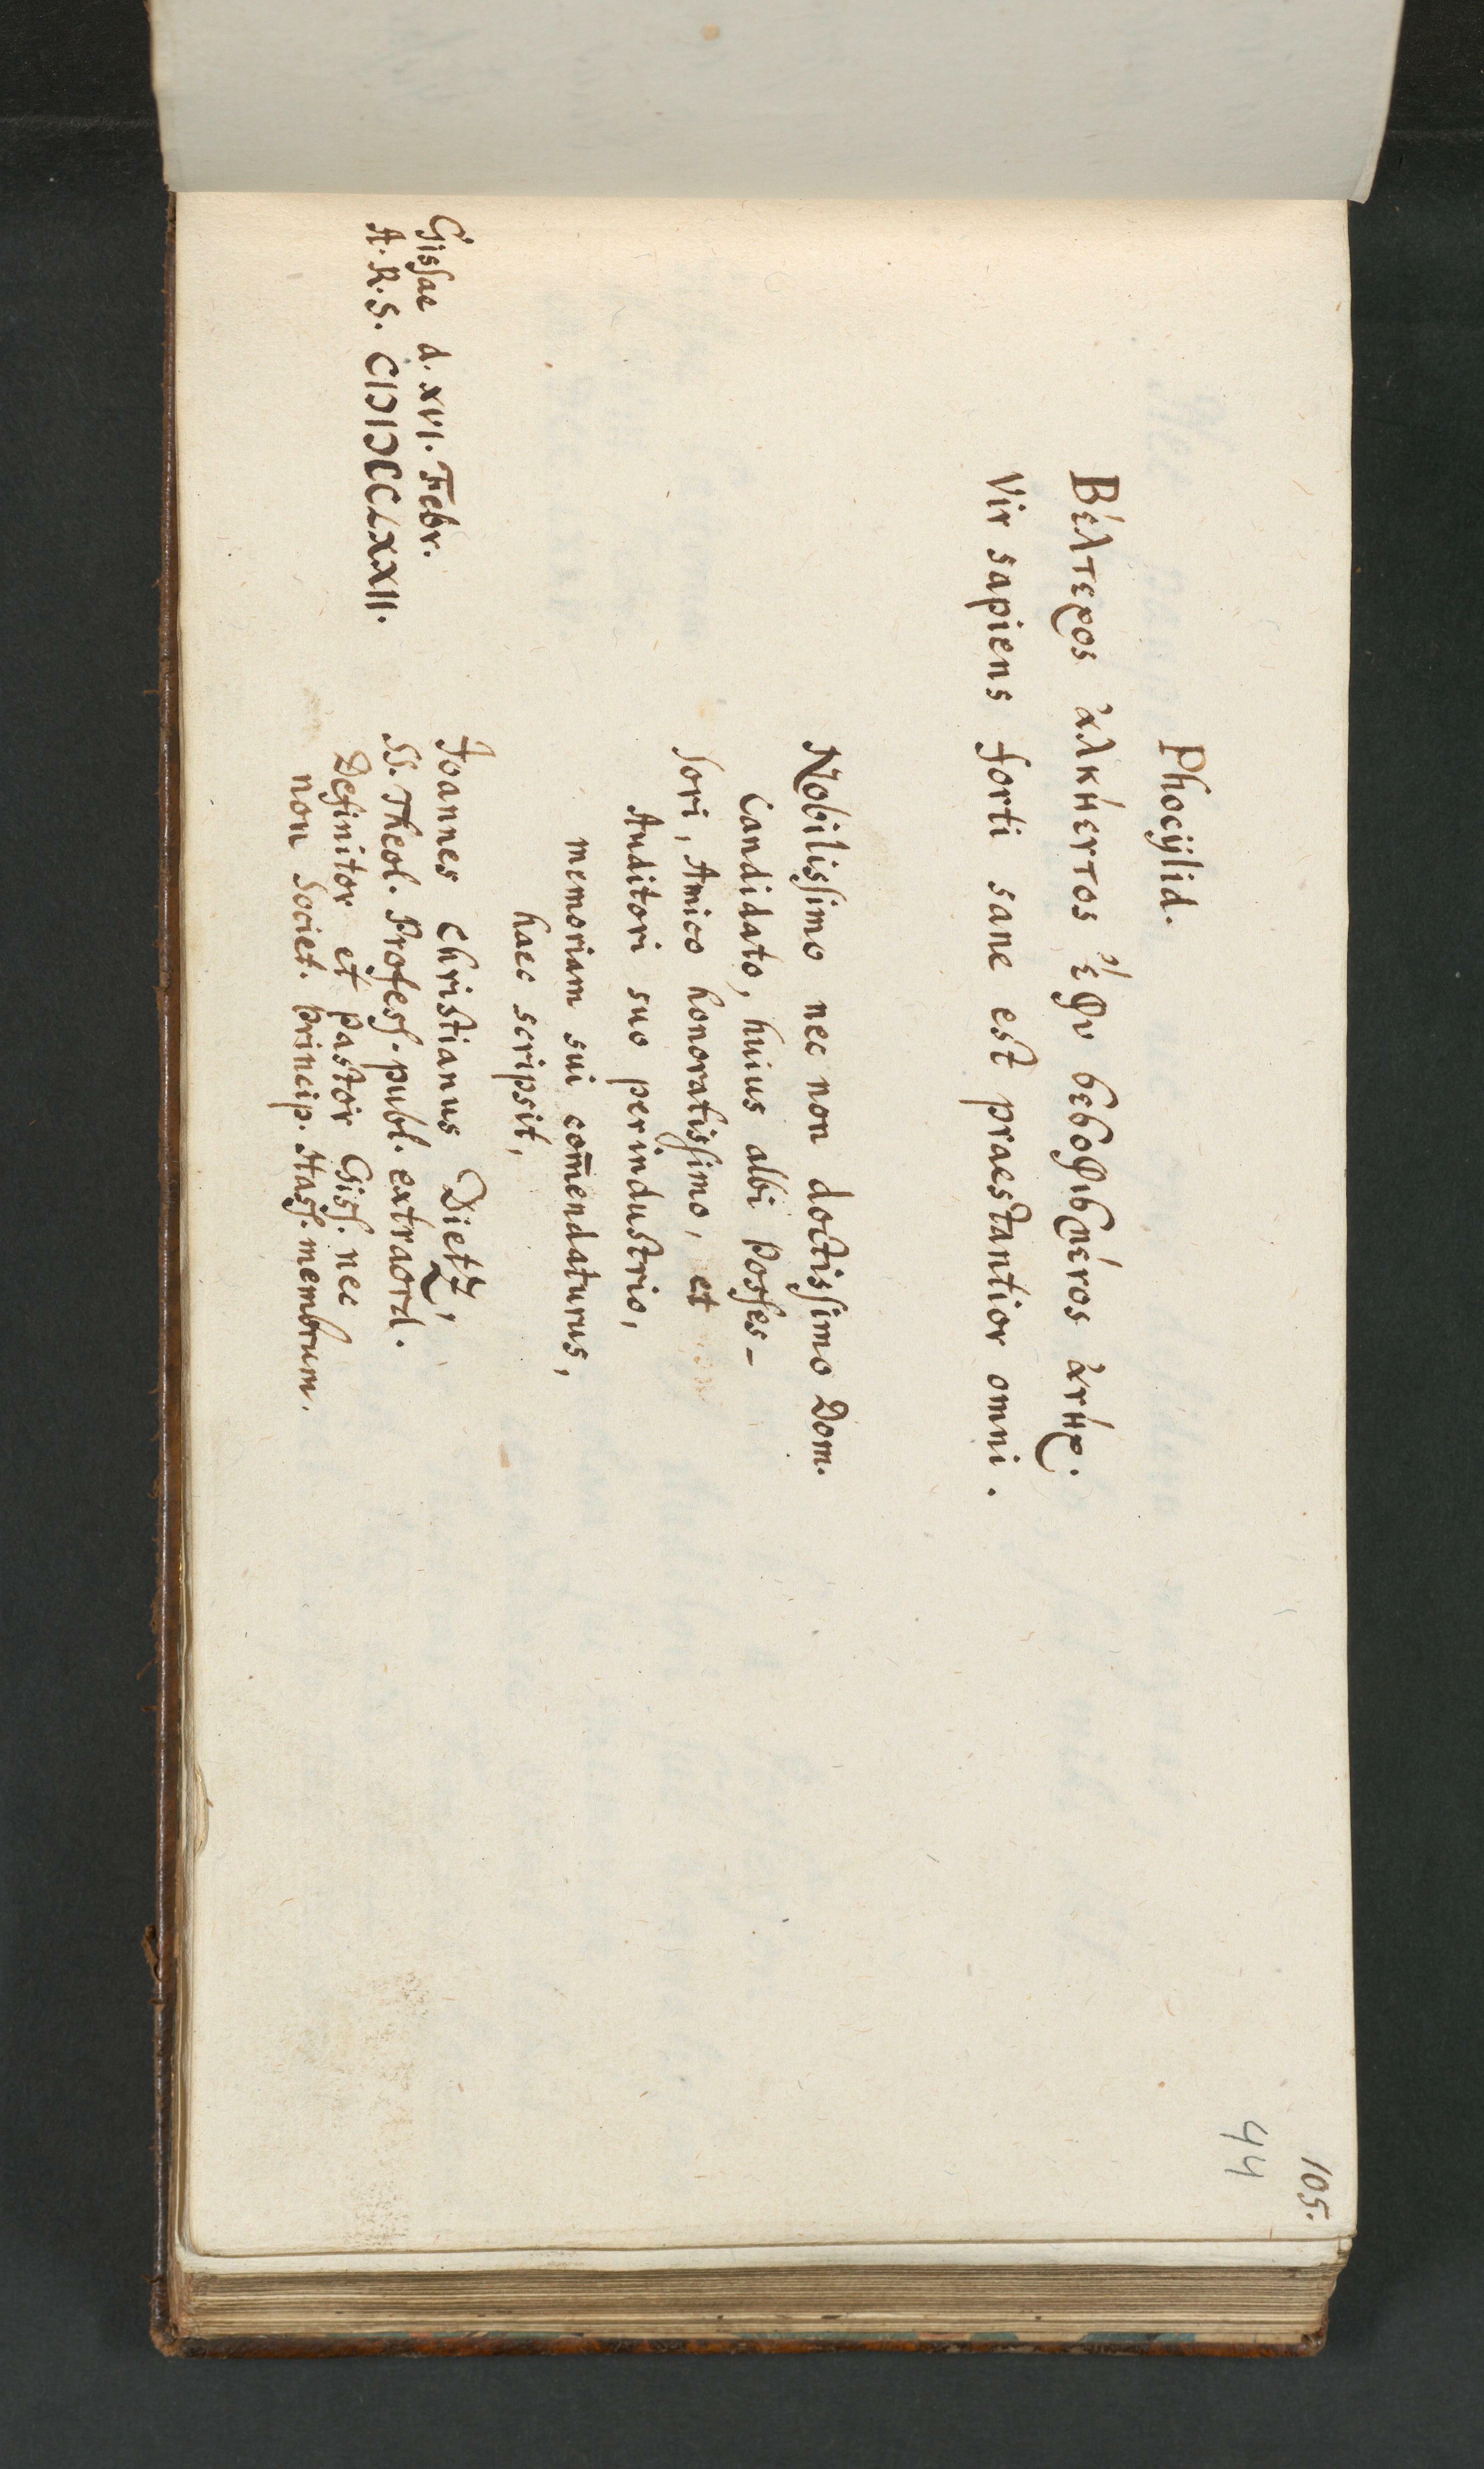 105.
44
Phocÿlid.
Βέλτερος ἀλκήεντος ἔφυ σεσοφισμένος ἀνήρ.
Vir sapiens forti sane est praestantior omni.
Nobilisſimo nec non doctisſimo Dom.
Candidato, huius albi Posſes-
sori, Amico honoratisſimo, et
Auditori suo perindustrio,
memoriam sui com̄endaturus,
haec scripsit,
Joannes Christianus Dietz,
SS. Theol. Profesſ. publ. extraord.
Definitor et pastor Gisſ. nec
non Societ. princip. Hasſ. membrum.
Gisſae d. XVI. Febr.
A. R. S. CIƆIƆCCLXXII.